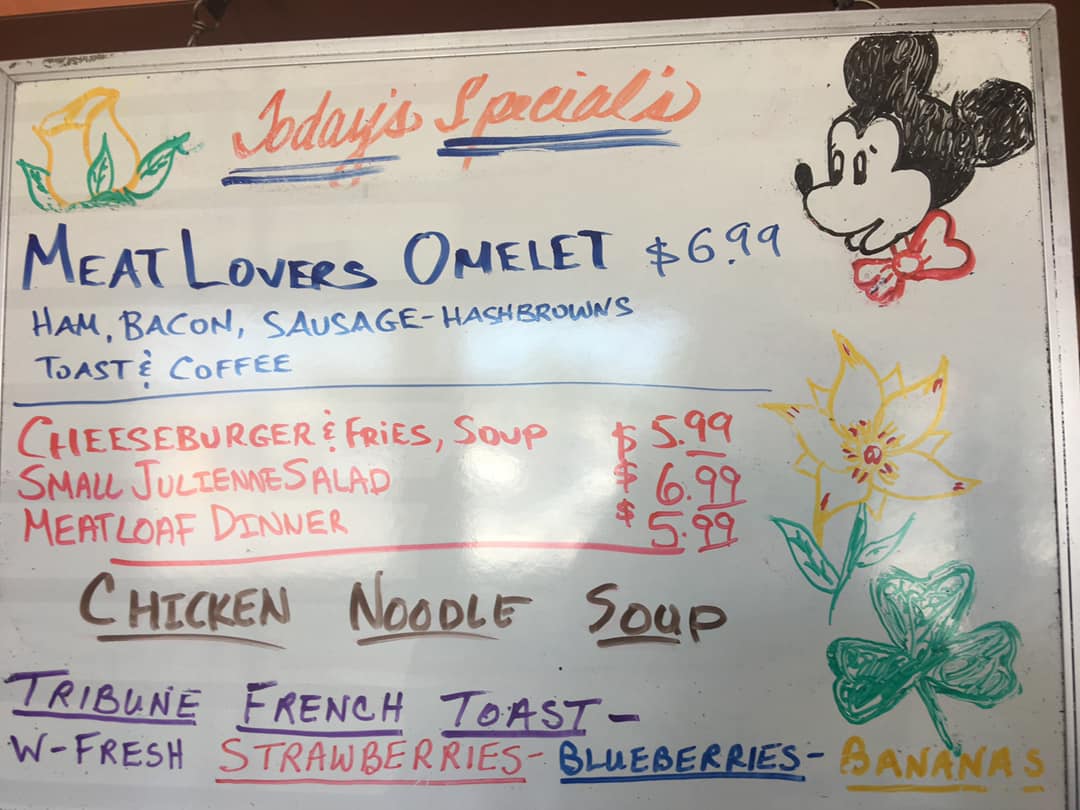 Today's Special's
MEAT LOVERS OMELET $6.99
HAM, BACON, SAUSAGE-HASHBROWNS
TOAST & COFFEE
CHEESEBURGER & FRIES, SOUP $5.99
SMALL JULIENNE SALAD $6.99
MEATLOAF DINNER $5.99
CHICKEN NOODLE SOUP
TRIBUNE FRENCH TOAST-
W-FRESH STRAWBERRIES-BLUEBERRIES-BANANAS